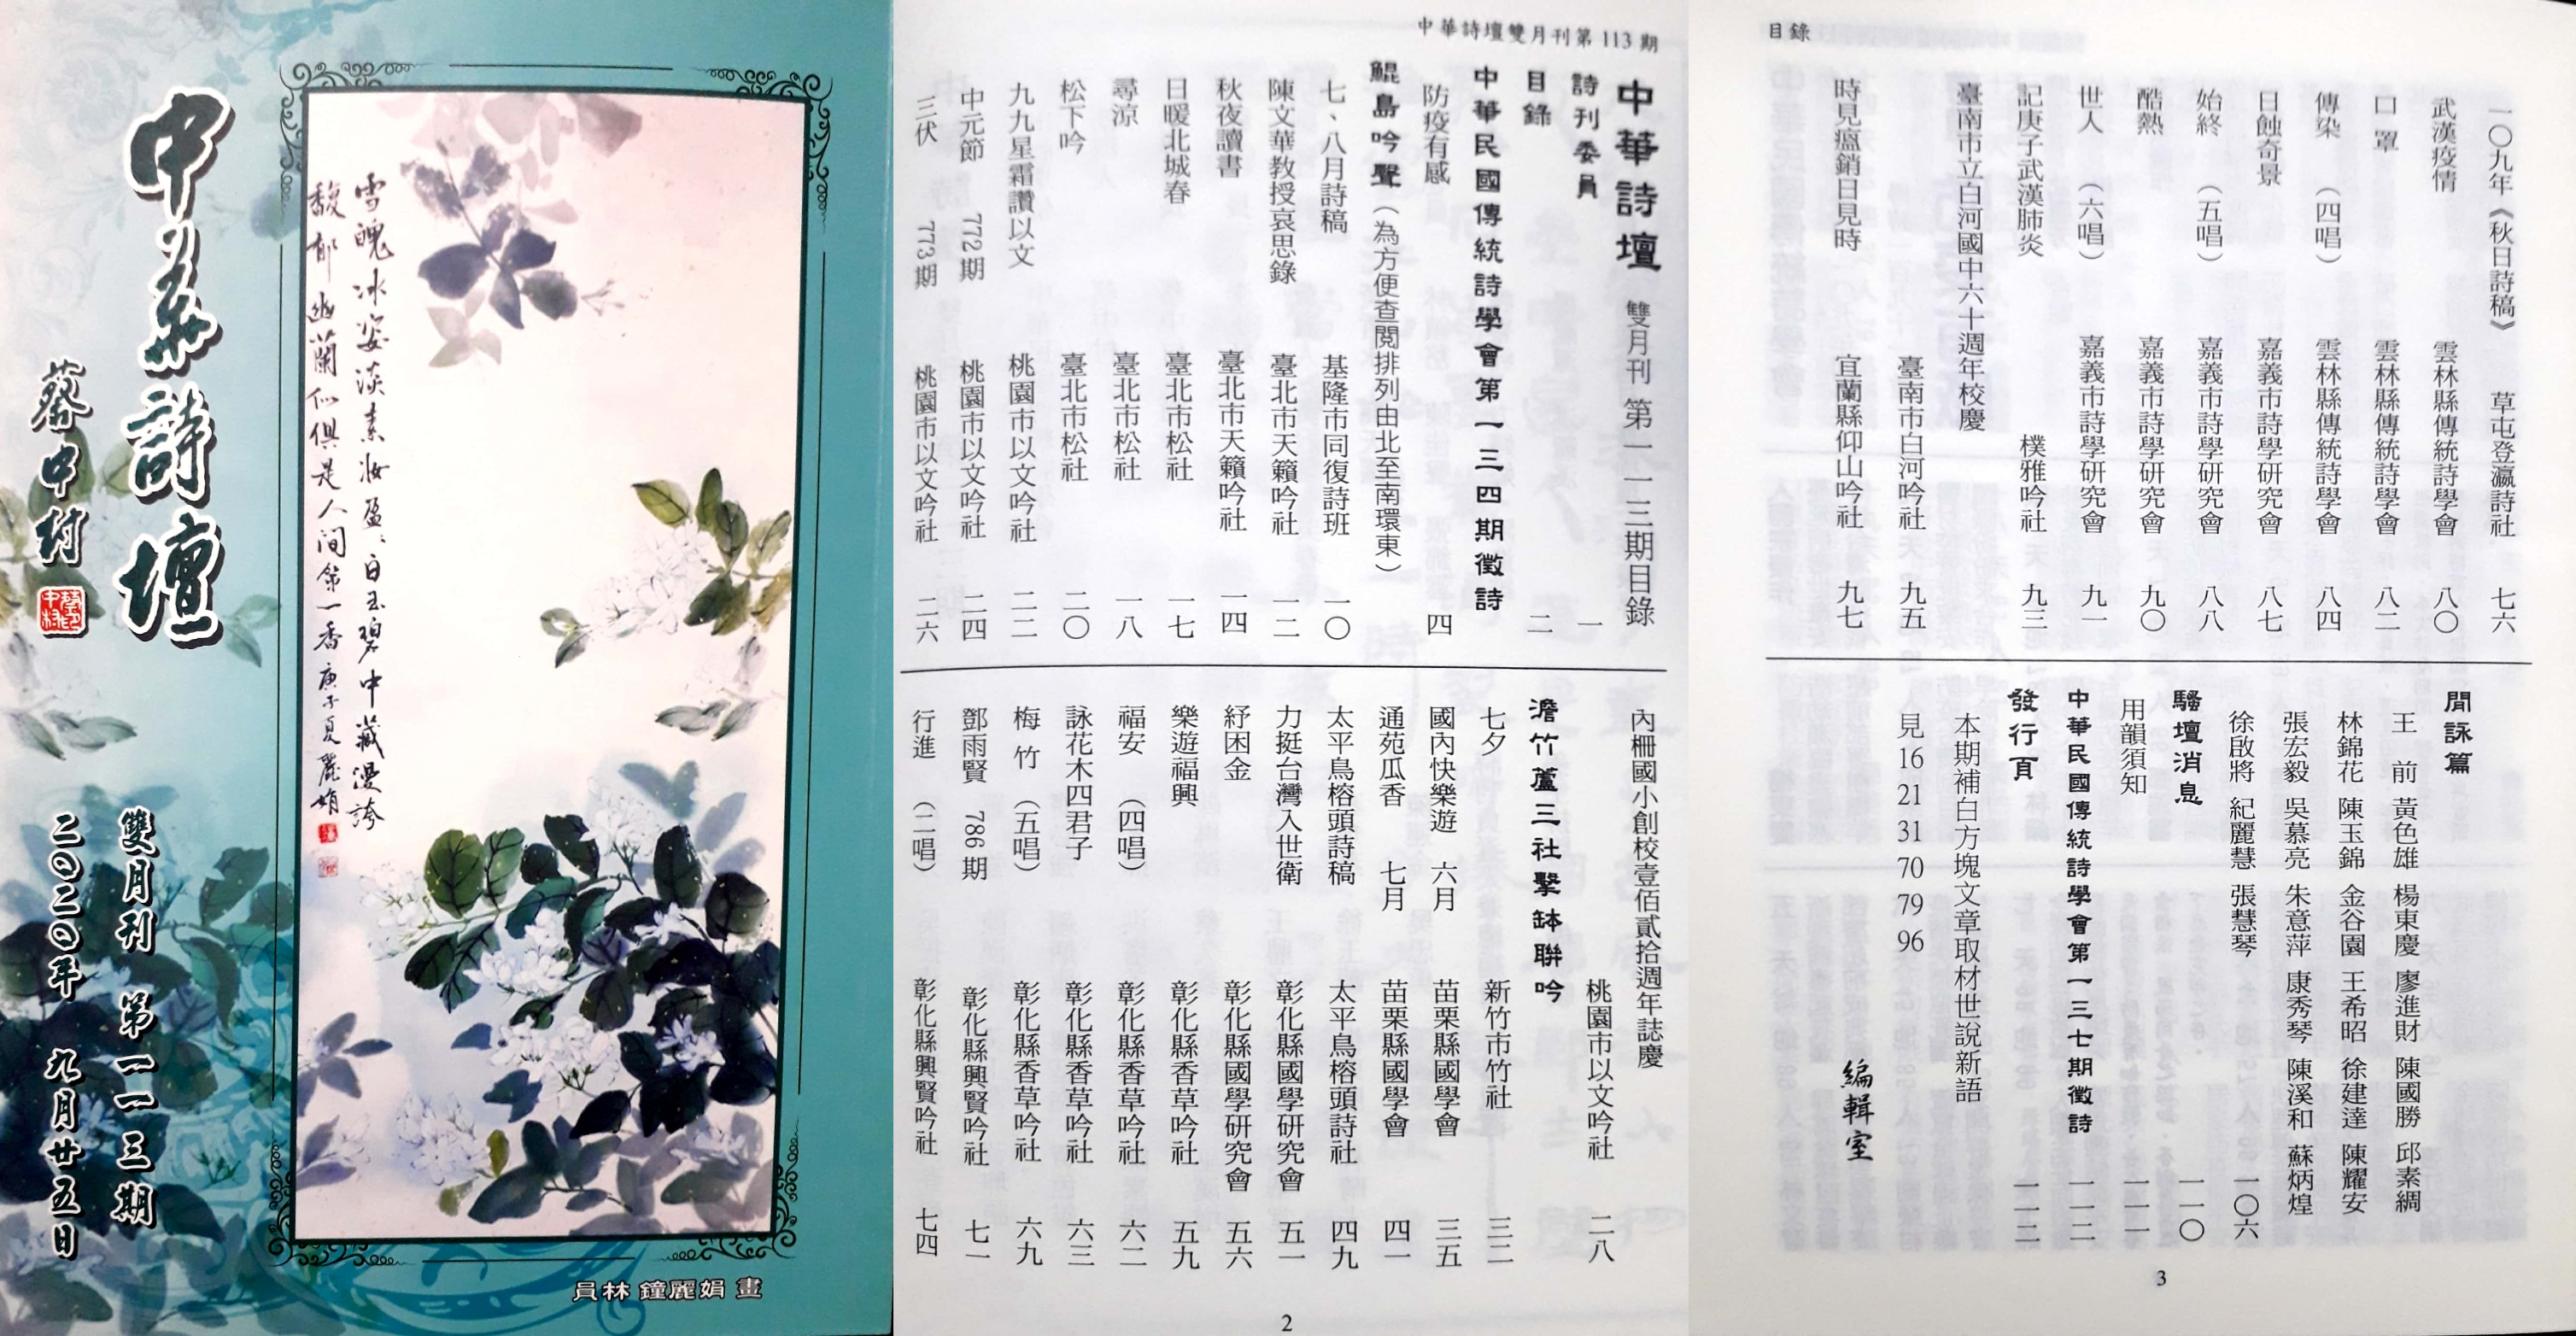 中華詩壇
蔡中村
雙月刊 第一一三期
二〇二〇年 九月廿五日
雪魄冰姿淡素妝盈盈白玉碧中藏漫誇
馥郁幽蘭似俱是人間第一香 庚子夏 麗娟
員林 鐘麗娟 畫
中華詩壇雙月刊第 113 期
中華詩壇 雙月刊 第一一三期目錄
詩刊委員 一
目錄 二
中華民國傳統詩學會第一三四期徵詩
防疫有感 四
鯤島吟聲(為方便查閱排列由北至南環東)
七、八月詩稿 基隆市同復詩班 一〇
陳文華教授哀思錄 臺北市天籟吟社 一二
秋夜讀書 臺北市天籟吟社 一四
日暖北城春 臺北市松社 一七
尋涼 臺北市松社 一八
松下吟 臺北市松社 二〇
九九星霜讚以文 桃園市以文吟社 二二
中元節 772期 桃園市以文吟社 二四
三伏 773期 桃園市以文吟社 二六
內柵國小創校壹佰貳拾週年誌慶
桃園市以文吟社 二八
澹竹蘆三社擊鉢聯吟
七夕 新竹市竹社 三二
國內快樂遊 六月 苗栗縣國學會 三五
通苑瓜香 七月 苗栗縣國學會 四一
太平鳥榕頭詩稿 太平鳥榕頭詩社 四九
力挺台灣入世衛 彰化縣國學研究會 五一
紓困金 彰化縣國學研究會 五六
樂遊福興 彰化縣香草吟社 五九
福安 (四唱) 彰化縣香草吟社 六二
詠花木四君子 彰化縣香草吟社 六三
梅 竹 (五唱) 彰化縣香草吟社 六九
鄧雨賢 786期 彰化縣興賢吟社 七一
行進 (二唱) 彰化縣興賢吟社 七四
2
目錄
一〇九年《秋日詩稿》 草屯登瀛詩社 七六
武漢疫情 雲林縣傳統詩學會 八〇
口 罩 雲林縣傳統詩學會 八二
傳染 (四唱) 雲林縣傳統詩學會 八四
日蝕奇景 嘉義市詩學研究會 八七
始終 (五唱) 嘉義市詩學研究會 八八
酷熱 嘉義市詩學研究會 九〇
世人 (六唱) 嘉義市詩學研究會 九一
記庚子武漢肺炎 樸雅吟社 九三
臺南市立白河國中六十週年校慶
臺南市白河吟社 九五
時見瘟銷日見時 宜蘭縣仰山吟社 九七
閒詠篇
王 前 黃色雄 楊東慶 廖進財 陳國勝 邱素綢
林錦花 陳玉錦 金谷園 王希昭 徐建達 陳耀安
張宏毅 吳慕亮 朱意萍 康秀琴 陳溪和 蘇炳煌
徐啟將 紀麗慧 張慧琴 一〇六
騷壇消息 一一〇
用韻須知 一一一
中華民國傳統詩學會第一三七期徵詩 一一二
發行頁 一一二
本期補白方塊文章取材世說新語
見 16 21 31 70 79 96
編輯室
3